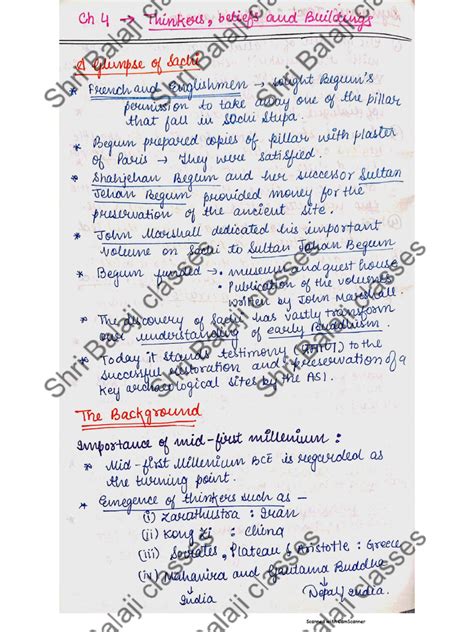 Ch 4 → Thinkers, beliefs and Buildings
A Glimpse of Sachi
* French and Englishmen → sought Begum's
permission to take away one of the pillar
that fall in Sachi Stupa.
* Begum prepared copies of pillar with plaster
of Paris → They were satisfied.
* Shahjehan Begum and her successor Sultan
Jehan Begum provided money for the
preservation of the ancient site.
* John Marshall dedicated his important
volume on Sachi to Sultan Jahan Begum
* Begum funded → • museum and guest house
• Publication of the volumes
written by John Marshall
* The discovery of Sachi has vastly transform
our understanding of early Buddhism.
* Today it stands testimony to the
successful restoration and preservation of a
key archaeological sites by the ASI.
The Background
Importance of mid-first millenium :
* Mid-first Millenium BCE is regarded as
the turning point.
* Emegence of thinkers such as —
(i) Zarathustra : Iran
(ii) Kong Zi : China
(iii) Socrates, Plateau & Aristotle : Greece
(iv) Mahavira and Gautama Buddha
India Nepal/India.
Shri Balaji classes
Shri Balaji classes
Shri Balaji classes
Shri Balaji classes
Scanned with CamScanner